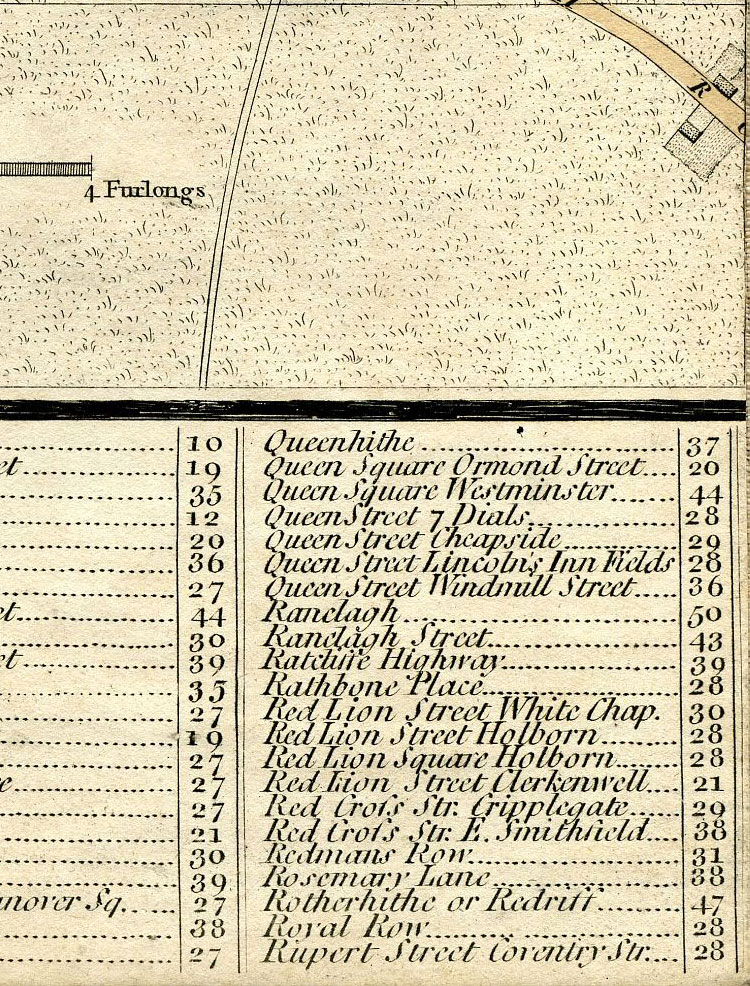 R
4 Furlongs
10
et 19
35
12
20
36
27
et 44
30
et 39
35
27
19
27
27
27
21
30
39
anover Sq. 27
38
27
Queenhithe 37
Queen Square Ormond Street 20
Queen Square Westminster 44
Queen Street 7 Dials 28
Queen Street Cheapside 29
Queen Street Lincolns Inn Fields 28
Queen Street Windmill Street 36
Ranelagh 50
Ranelagh Street 43
Ratcliffe Highway 39
Rathbone Place 28
Red Lion Street White Chap. 30
Red Lion Street Holborn 28
Red Lion Square Holborn 28
Red Lion Street Clerkenwell 21
Red Croſs Str. Cripplegate 29
Red Croſs Str. E. Smithfield 38
Redmans Row 31
Rosemary Lane 38
Rotherhithe or Redriff 47
Royal Row 28
Rupert Street Coventry Str. 28